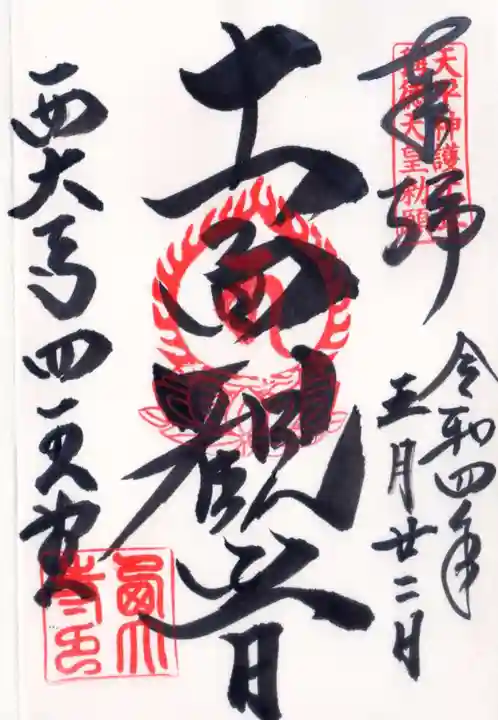 奉拝
天平神護元年
称徳天皇勅願
令和四年
五月廿二日
十一面観音
西大寺四王堂